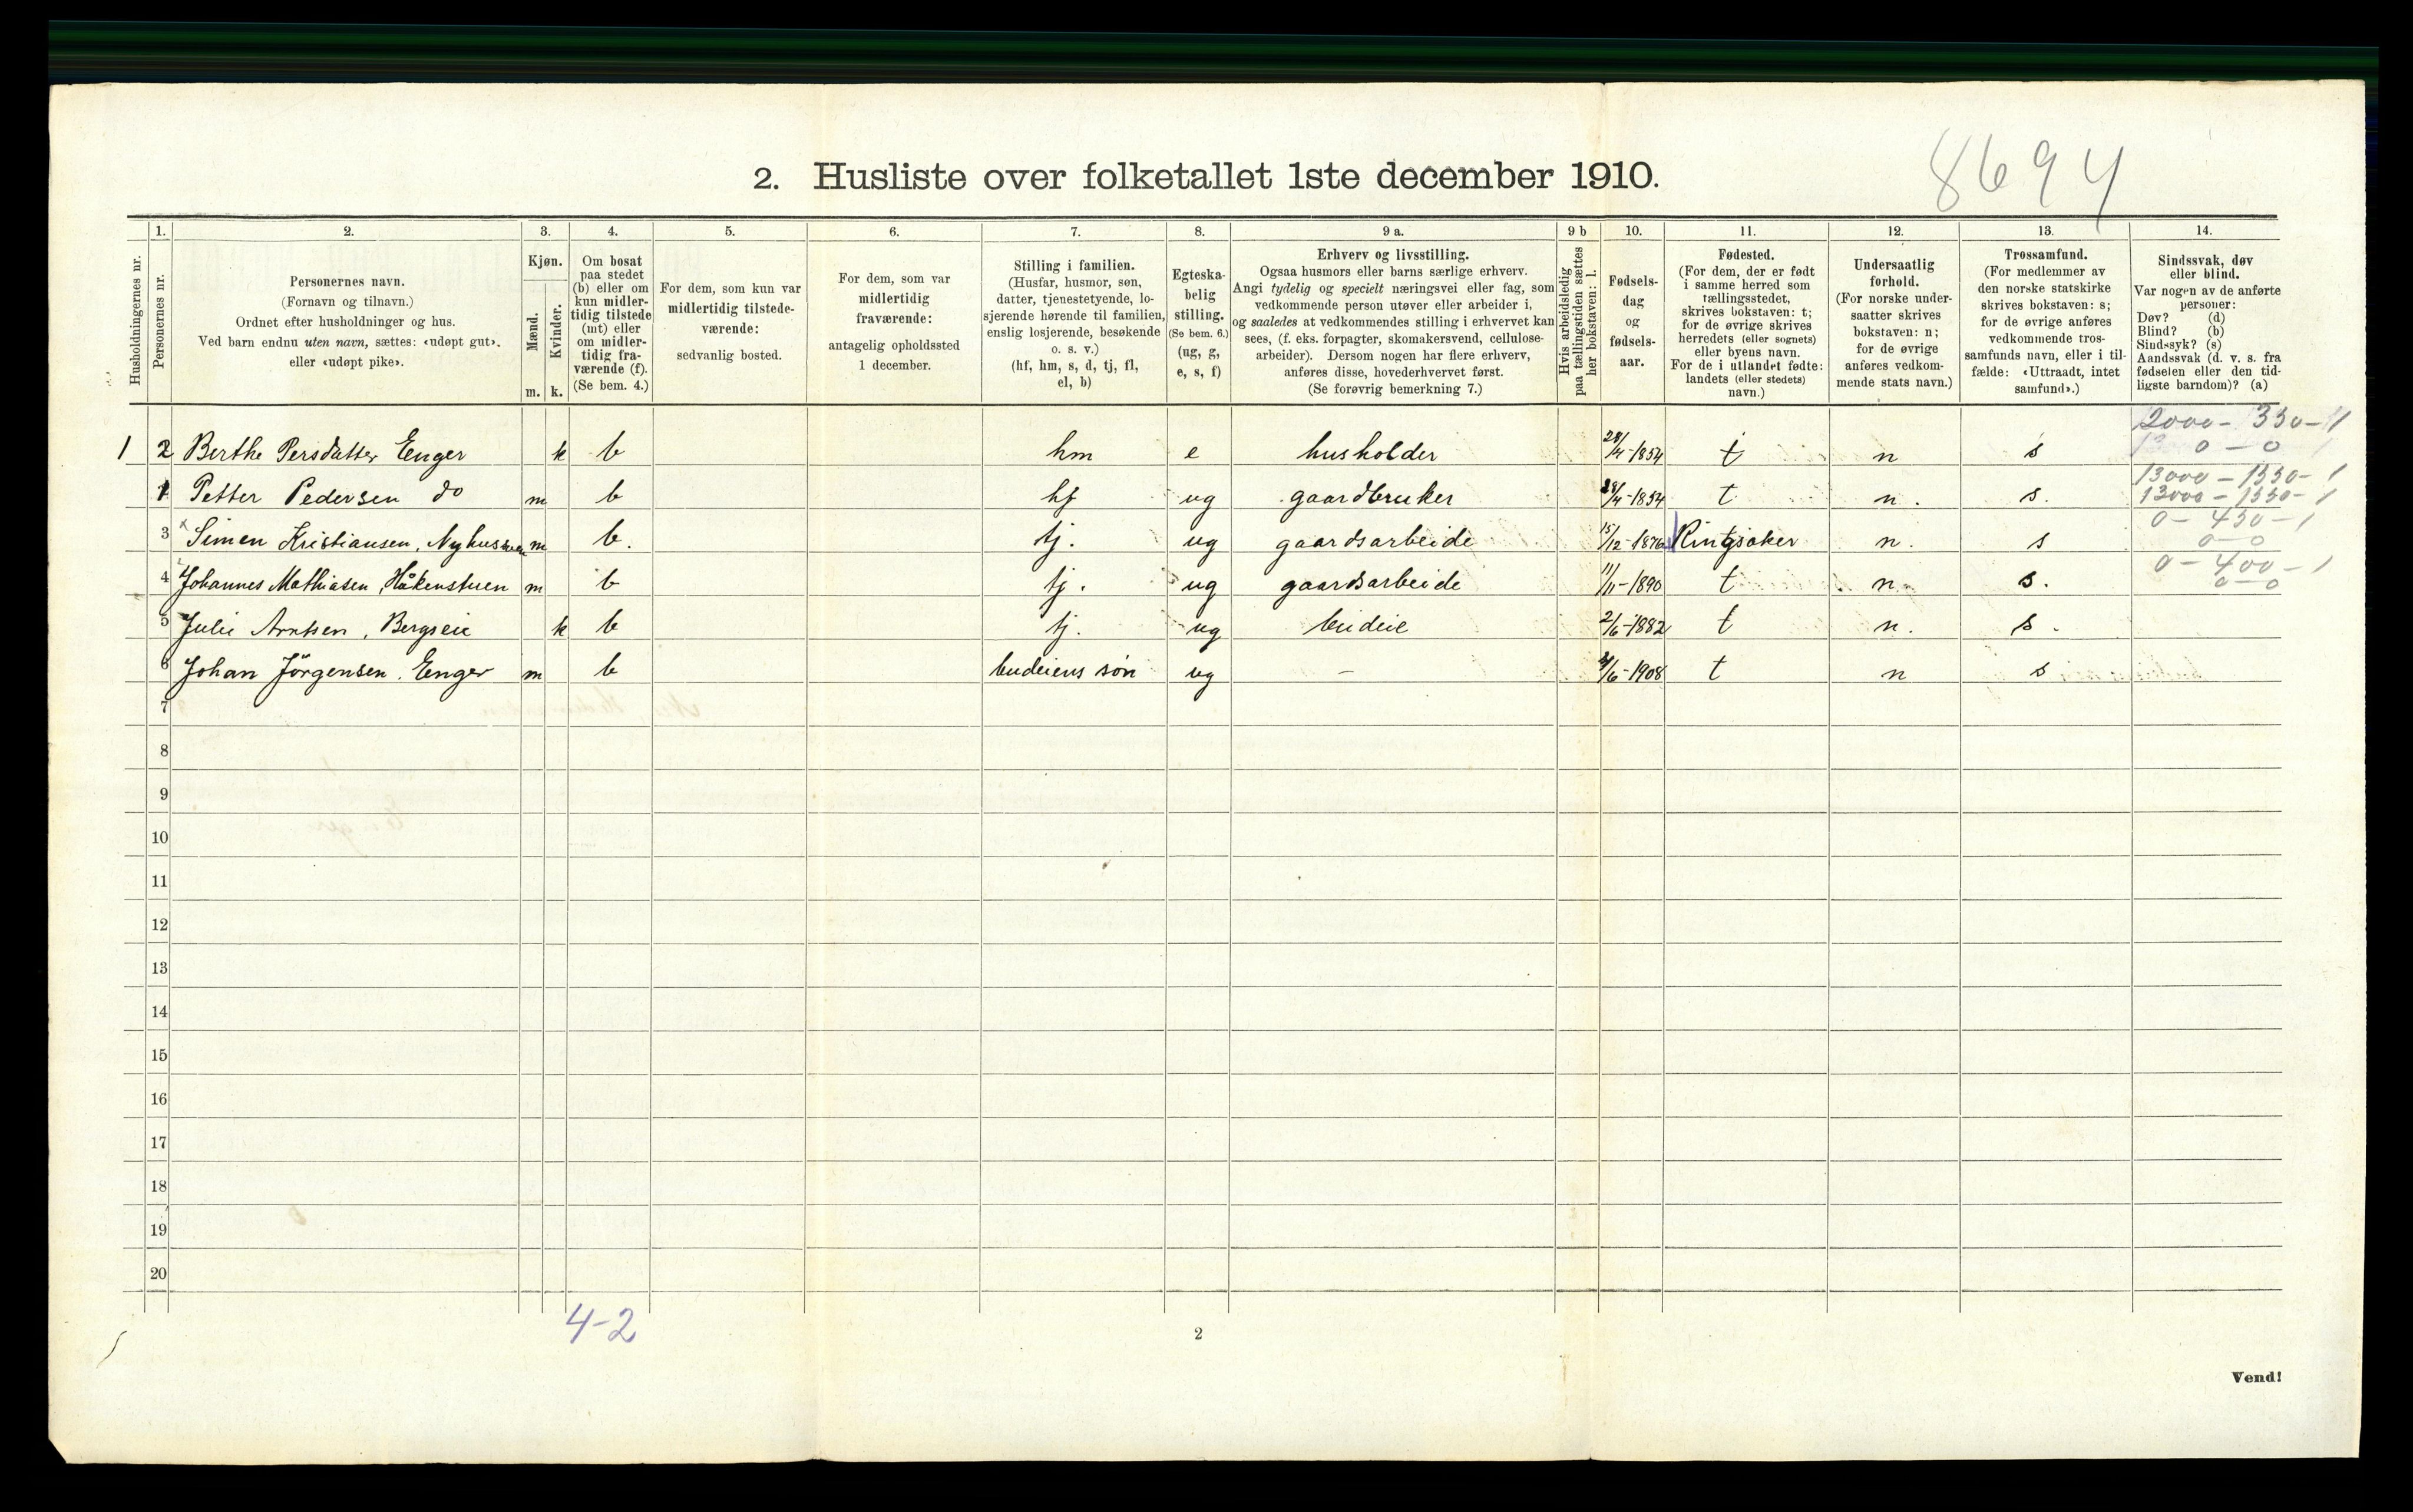 8694
2. Husliste over folketallet 1ste december 1910.
Husholdningernes nr.
1.
Personernes nr.
2.
Personernes navn.
(Fornavn og tilnavn.)
Ordnet efter husholdninger og hus.
Ved barn endnu uten navn, sættes: «udøpt gut»
eller «udøpt pike».
3.
Kjøn.
Mænd.
Kvinder.
m. k.
4.
Om bosat
paa stedet
(b) eller om
kun midler-
tidig tilstede
(mt) eller
om midler-
tidig fra-
værende (f).
(Se bem. 4.)
5.
For dem, som kun var
midlertidig tilstede-
værende:
sedvanlig bosted.
6.
For dem, som var
midlertidig
fraværende:
antagelig opholdssted
1 december.
7.
Stilling i familien.
(Husfar, husmor, søn,
datter, tjenestetyende, lo-
sjerende hørende til familien,
enslig losjerende, besøkende
o. s. v.)
(hf, hm, s, d, tj, fl,
el, b)
8.
Egteska-
belig
stilling.
(Se bem. 6.)
(ug, g,
e, s, f)
9 a.
Erhverv og livsstilling.
Ogsaa husmors eller barns særlige erhverv.
Angi tydelig og specielt næringsvei eller fag, som
vedkommende person utøver eller arbeider i,
og saaledes at vedkommendes stilling i erhvervet kan
sees, (f. eks. forpagter, skomakersvend, cellulose-
arbeider). Dersom nogen har flere erhverv,
anføres disse, hovederhvervet først.
(Se forøvrig bemerkning 7.)
9 b
Hvis arbeidsledig
paa tællingstiden sættes
her bokstaven: l.
10.
Fødsels-
dag
og
fødsels-
aar.
11.
Fødested.
(For dem, der er født
i samme herred som
tællingsstedet,
skrives bokstaven: t;
for de øvrige skrives
herredets (eller sognets)
eller byens navn.
For de i utlandet fødte:
landets (eller stedets)
navn.)
12.
Undersaatlig
forhold.
(For norske under-
saatter skrives
bokstaven: n;
for de øvrige
anføres vedkom-
mende stats navn.)
13.
Trossamfund.
(For medlemmer av
den norske statskirke
skrives bokstaven: s;
for de øvrige anføres
vedkommende tros-
samfunds navn, eller i til-
fælde: «Uttraadt, intet
samfund».)
14.
Sindssvak, døv
eller blind.
Var nogen av de anførte
personer:
Døv? (d)
Blind? (b)
Sindssyk? (s)
Aandssvak (d. v. s. fra
fødselen eller den tid-
ligste barndom)? (a)
1 2 Berthe Persdatter Enger k b hm e husholder 28/4-1854 t n s
1 Petter Pedersen do m b hf ug gaardbruker 28/4-1854 t n. s.
13000 - 1550 - 1
13000 - 1550 - 1
3 Simen Kristiansen, Nyhusuen m b. tj. ug gaardsarbeide 15/12-1876 Ringsaker n. s
0 - 450 - 1
0 - 0
4 Johannes Mathiasen, Håkenstuen m b tj. ug gaardsarbeide 11/11-1890 t n. s.
0 - 400 - 1
0 - 0
5 Julie Arntsen, Bergseie k b tj. ug budeie 2/6-1882 t n. s.
6 Johan Jörgensen. Enger m b budeiens søn ug - /6-1908 t n s
7
8
9
10
11
12
13
14
15
16
17
18
19
20
4-2
2
Vend!